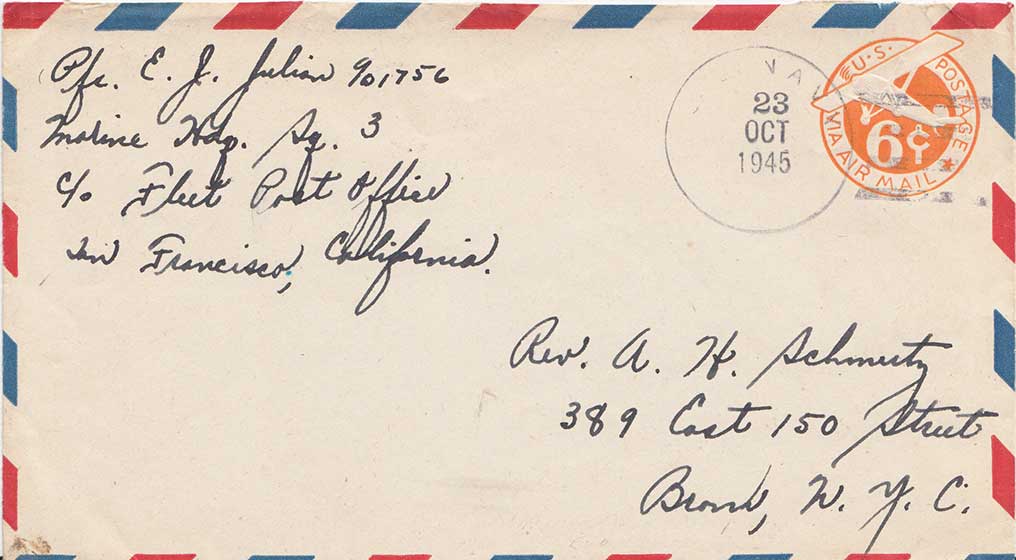 Pfc. E. J. Julian 901756
Marine Hdq. Sq. 3
c/o Fleet Post Office
San Francisco, California.
NAVY
23
OCT
1945
U.S. POSTAGE
6¢
VIA AIR MAIL
Rev. A. H. Schmertz
389 East 150 Street
Bronx, N. Y. C.